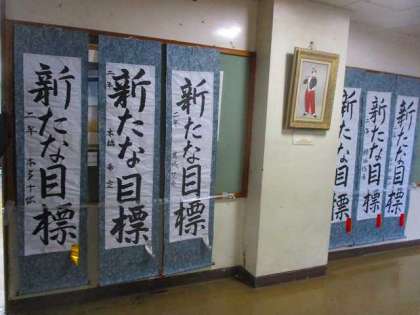 新たな目標
二年
新たな目標
二年
新たな目標
二年
新たな目標
新たな目標
新たな目標